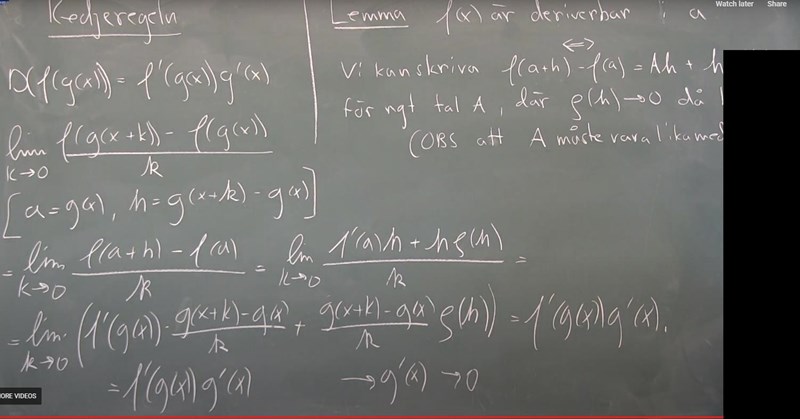 Kedjeregeln
D(f(g(x))) = f'(g(x)) g'(x)
lim k→0 f(g(x+k)) - f(g(x)) / k
[a = g(x), h = g(x+k) - g(x)]
= lim k→0 f(a+h) - f(a) / k = lim k→0 f'(a)h + hρ(h) / k =
= lim k→0 (f'(g(x)) · g(x+k) - g(x) / k + g(x+k) - g(x) / k ρ(h)) = f'(g(x)) g'(x).
= f'(g(x)) g'(x) → g'(x) → 0
Lemma f(x) är deriverbar i a
⇔
Vi kan skriva f(a+h) - f(a) = Ah + h
för ngt tal A, där ρ(h) → 0 då
(OBS att A måste vara lika med
Watch later Share
ORE VIDEOS